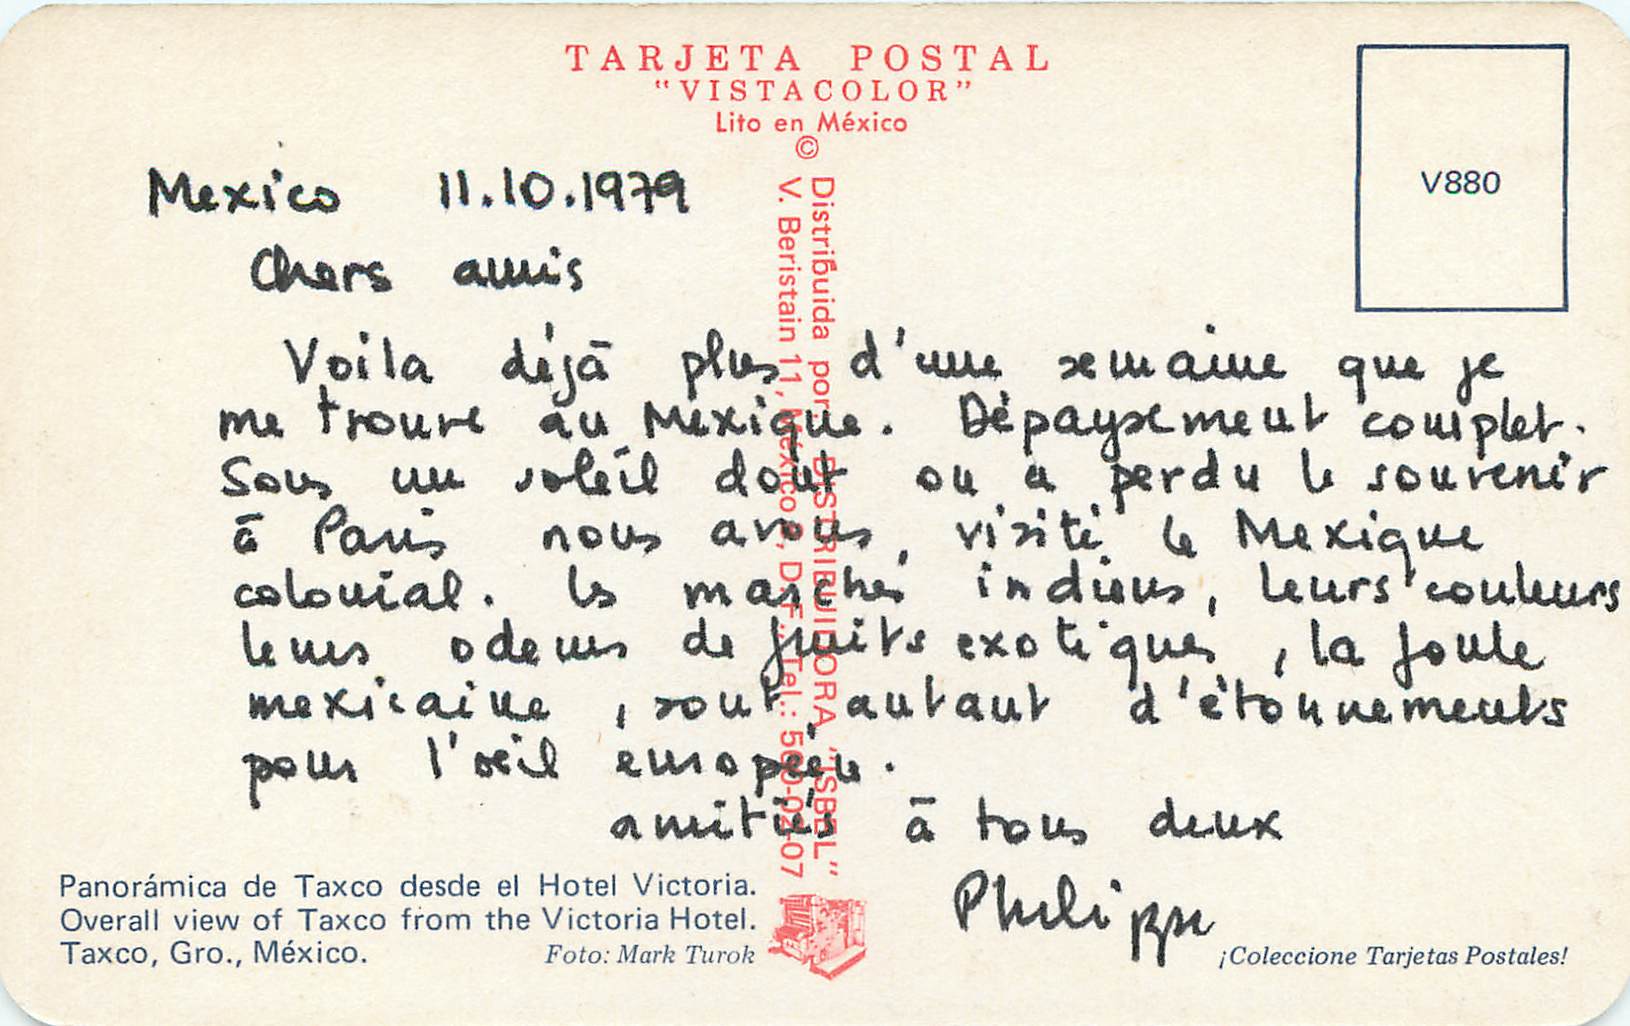 TARJETA POSTAL
"VISTACOLOR"
Lito en México
©
Distribuida por: DISTRIBUIDORA "ISBEL"
V. Beristain 11, México 8, D. F., Tel.: 590-02-07
V880
Mexico 11.10.1979
Chers amis
Voila déjà plus d'une semaine que je
me trouve au Mexique. Dépaysement complet.
Sous un soleil dont on a perdu le souvenir
à Paris nous avons, visité le Mexique
colonial. Les marchés indiens, leurs couleurs
leurs odeurs de fruits exotiques, la foule
mexicaine, sont autant d'étonnements
pour l'oeil européen.
amitiés à tous deux
Philippe
Panorámica de Taxco desde el Hotel Victoria.
Overall view of Taxco from the Victoria Hotel.
Taxco, Gro., México. Foto: Mark Turok
¡Coleccione Tarjetas Postales!